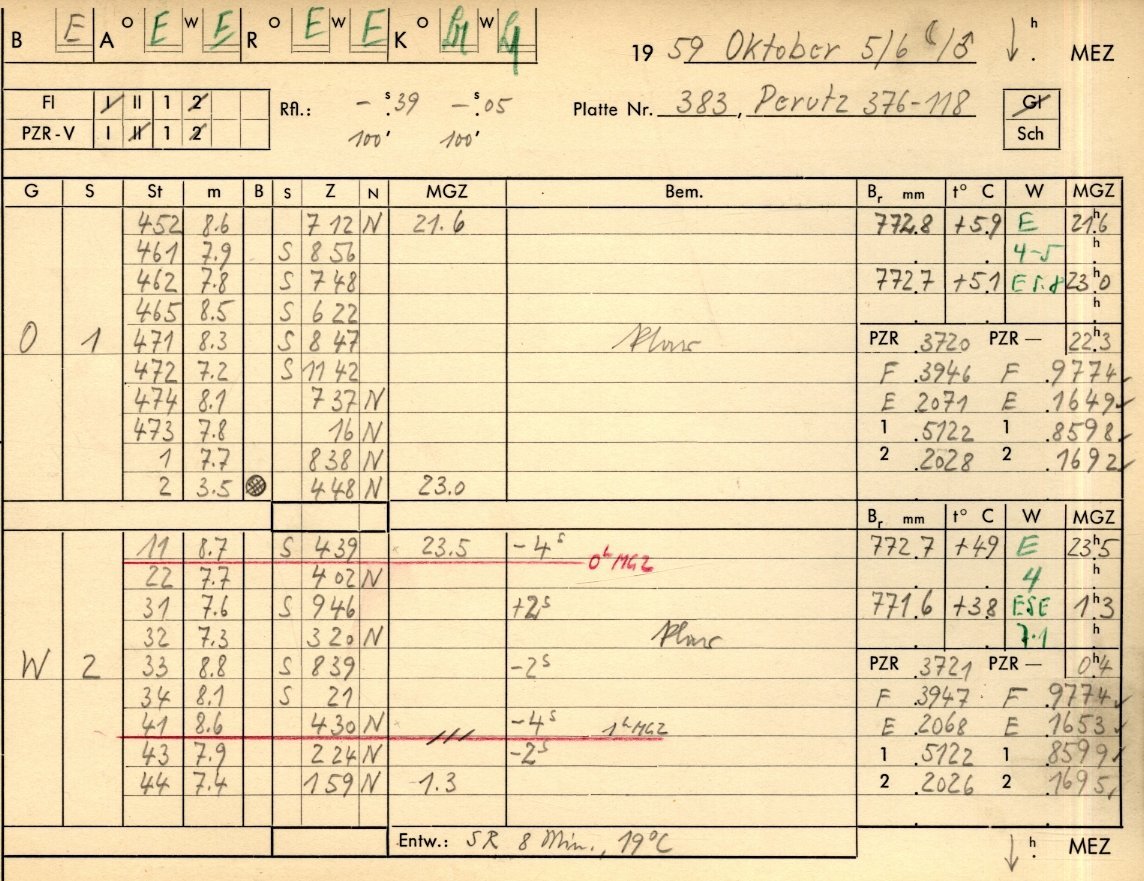 B E A O E W E R O E W E K O W h
19 59 Oktober 5/6 ☾/♂ MEZ
Fl I II 1 2 Rfl.: -.ˢ39 -.ˢ05 Platte Nr. 383, Perutz 376-118 Gl
PZR-V I II 1 2 100' 100' Sch
G S St m B S Z N MGZ Bem. Bᵣ mm t° C W MGZ
452 8.6 7 12 N 21.6 772.8 +5.9 E 21ʰ6
461 7.9 S 8 56 4-5 h
462 7.8 S 7 48 772.7 +5.1 E 5.8 23ʰ0
465 8.5 S 6 22 h
O 1 471 8.3 S 8 47 klar PZR .3720 PZR — 22ʰ3
472 7.2 S 11 42 F .3946 F .9774
474 8.1 7 37 N E .2071 E .1649
473 7.8 16 N 1 .5122 1 .8598
1 7.7 8 38 N 2 .2028 2 .1692
2 3.5 4 48 N 23.0
Bᵣ mm t° C W MGZ
11 8.7 S 4 39 23.5 -4ˢ 772.7 +4.9 E 23ʰ5
0ʰ MGZ
22 7.7 4 02 N 4 h
31 7.6 S 9 46 +2ˢ 771.6 +3.8 ESE 1ʰ3
32 7.3 3 20 N klar 7.1 h
W 2 33 8.8 S 8 39 -2ˢ PZR .3721 PZR — 0ʰ4
34 8.1 S 21 F .3947 F .9774
41 8.6 4 30 N -4ˢ 1ʰ MGZ E .2068 E .1653
43 7.9 2 24 N -2ˢ 1 .5122 1 .8599
44 7.4 1 59 N 1.3 2 .2026 2 .1695
Entw.: SR 8 Min., 19°C h MEZ